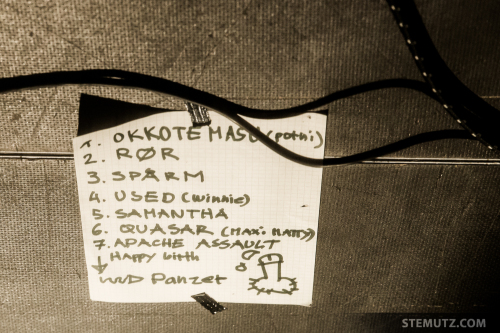 1. OKKOTE MASU (pothi)
2. RØR
3. SPÄRM
4. USED (winnie)
5. SAMANTHA
6. QUASAR (MAXi MATTY)
7. APACHE ASSAULT
HAPPY birth
↓ WUD Panzer
STEMUTZ.COM